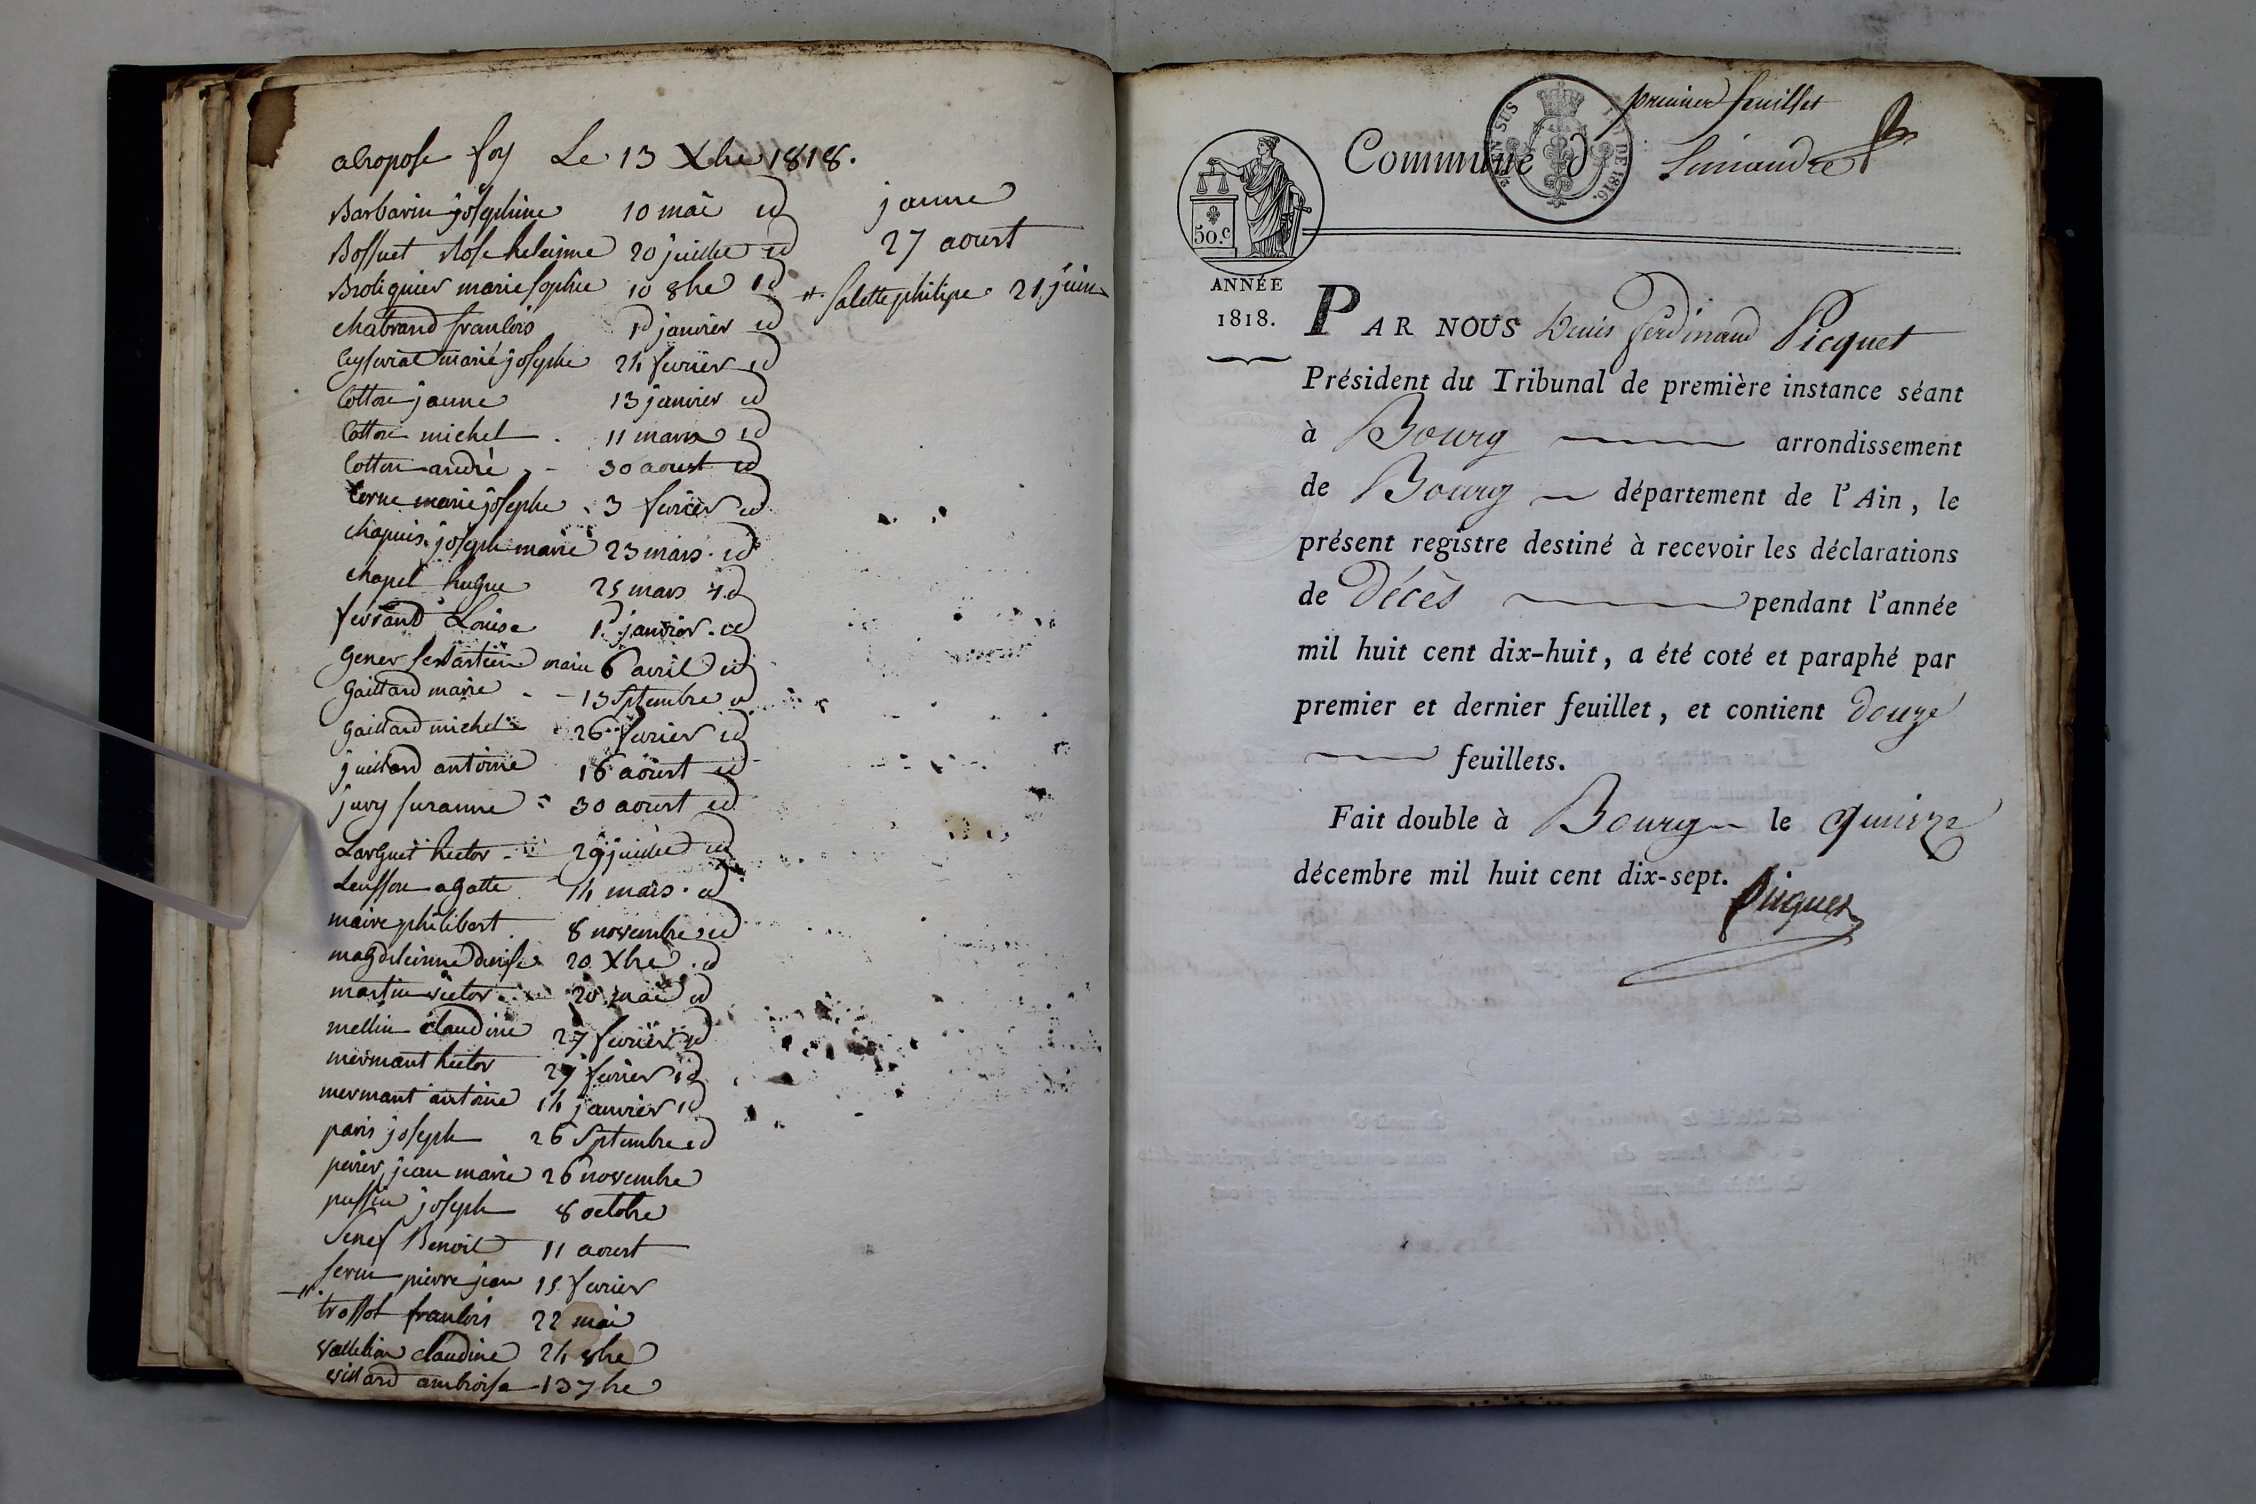 Le 13 Xbre 1818.
Barbarin joséphine 10 mai id jeanne
Bossuet Rose heleinne 20 juillet id 27 aoust
Broliquier marie sophie 10 8bre id #. salette philipe 21 juin
chabrand franlois 1er janvier id
marie josephe 24 fevrier id
Cotton jeanne 13 janvier id
Cotton michel - 11 mars id
Cotton andré - 30 aoust id
marie josephe 3 fevrier id
chapuis joseph marie 23 mars id
chapel hugue 25 mars id
ferrand Louise 1er janvier id
marie 6 avril id
gaillard marie - 13 septembre id
gaillard michel 26 fevrier id
juillard antoine 16 aoust id
jury suzanne 30 aoust id
Larguet hector 29 juillet id
agatte 14 mars id
maire philibert 8 novembre id
magdeleinne denise 20 Xbre id
martin victor 20 mai id
mellin claudine 27 fevrier id
mermant hector 27 fevrier id
mermant antoine 14 janvier id
paris joseph 26 septembre id
perier jean marie 26 novembre
joseph 8 octobre
Benoit 11 aoust
#. pierre jean 15 fevrier
trossot franlois 22 mai
claudine 24 8bre
villard ambroise 13 7bre
premier feuillet
Commune d Simandre
50.c
ANNÉE
1818.
TIM DE 1816.
PAR NOUS Denis ferdinand Picquet
Président du Tribunal de première instance séant
à Bourg arrondissement
de Bourg département de l'Ain, le
présent registre destiné à recevoir les déclarations
de Décès pendant l'année
mil huit cent dix-huit, a été coté et paraphé par
premier et dernier feuillet, et contient douze
feuillets.
Fait double à Bourg le quinze
décembre mil huit cent dix-sept.
Picquet